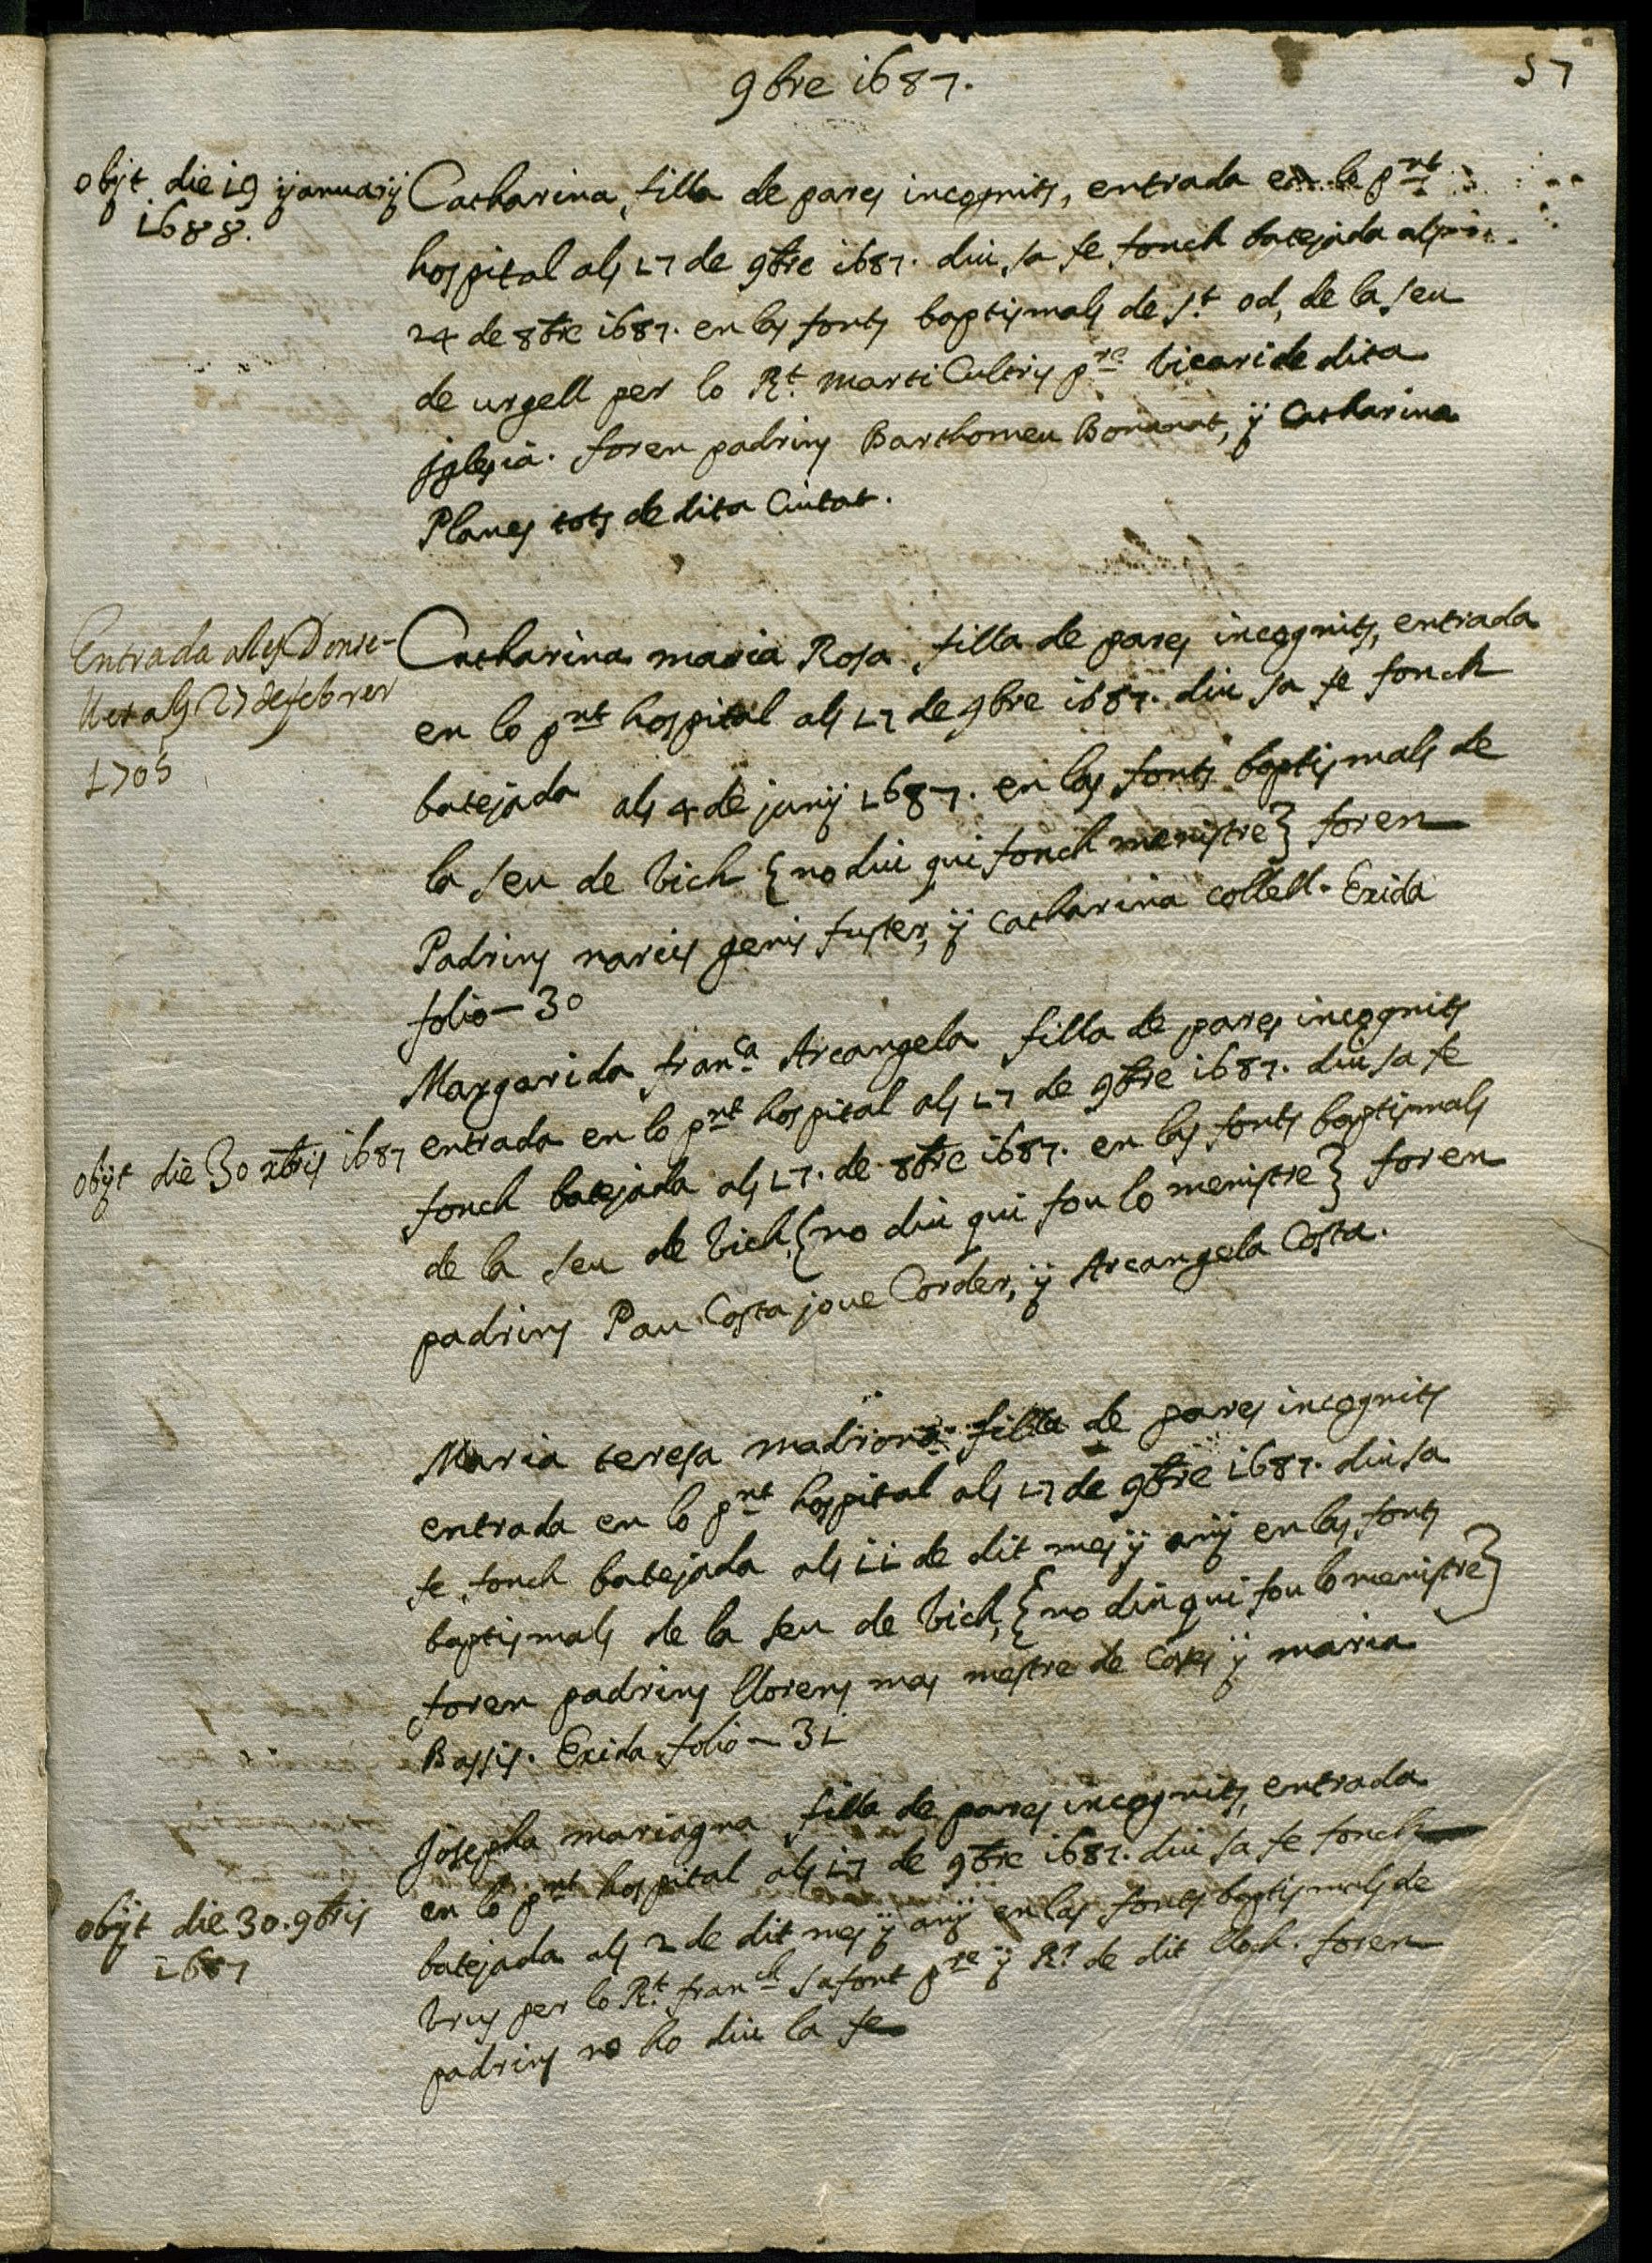 57
9bre 1687.
objt die 19 yanuarij
1688.
Catharina, filla de pares incognits, entrada en lo pnt
hospital als 17 de 9bre 1687. diu sa fe fonch batejada als
24 de 8bre 1687. en las fonts baptismals de St. od, de la seu
de urgell per lo Rt. marti Cultris pre vicari de dita
jglesia. foren padrins Barthomeu Bonanat, ÿ Catharina
Planes tots de dita Ciutat.
Entrada ales Donse-
lles als 27 de febrer
1705
Catharina maria Rosa filla de pares incognits, entrada
en lo pnt hospital als 17 de 9bre 1687. diu sa fe fonch
batejada als 4 de junÿ 1687. en las fonts baptismals de
la seu de Vich {no diu qui fonch menistre} foren
Padrins narcis genis fuster, ÿ Catharina collell. Exida
folio - 30
objt die 30 xbris 1687
Margarida franca. Arcangela filla de pares incognits
entrada en lo pnt hospital als 17 de 9bre 1687. diu sa fe
fonch batejada als 17. de 8bre 1687. en las fonts baptismals
de la seu de Vich {no diu qui fou lo menistre} foren
padrins Pau Costa joue Corder, ÿ Arcangela Costa.
Maria teresa madrona filla de pares incognits
entrada en lo pnt hospital als 17 de 9bre 1687. diu sa
fe fonch batejada als 11 de dit mes ÿ anÿ en las fonts
baptismals de la seu de Vich, {no diu qui fou lo menistre}
foren padrins llorens mas mestre de Cases ÿ maria
Bassis. Exida folio - 31
objt die 30. 9bris
1687
Josepha mariagna filla de pares incognits, entrada
en lo pnt hospital als 17 de 9bre 1687. diu sa fe fonch
batejada als 2 de dit mes ÿ anÿ en las fonts baptismals de
Vrus per lo Rt. franch Safont pre ÿ Rr de dit lloch. foren
padrins no ho diu la fe